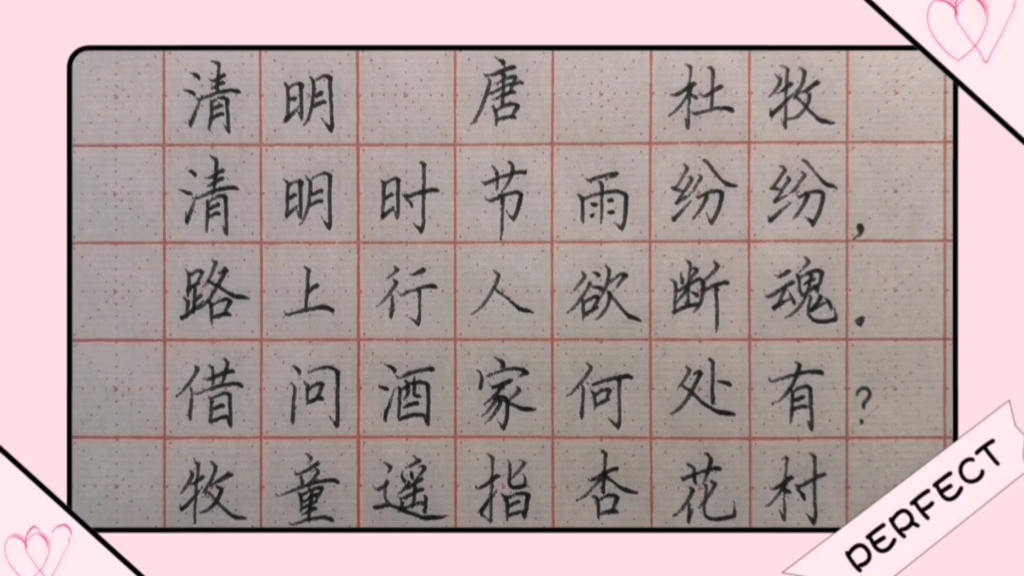 清明 唐 杜牧
清明时节雨纷纷，
路上行人欲断魂.
借问酒家何处有?
牧童遥指杏花村
PERFECT